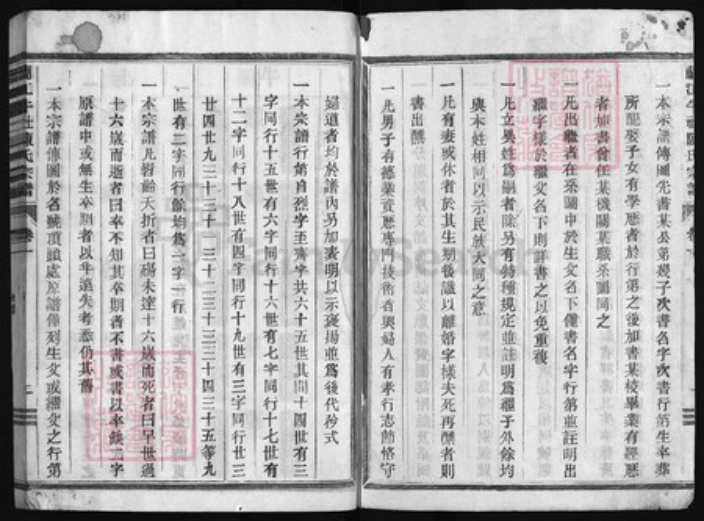 一本宗譜傳圖先書某公第幾子次書名字次書行第生卒葬
所配娶子女有學歷者於行第之後加書某校畢業有經歷
者加書曾任某機關某職系圖同之
一凡出繼者在系圖中於生父名下僅書名字行第並註明出
繼字樣於繼父名下則詳書之以免重複
一凡立異姓爲嗣者除另有特種規定並註明爲繼子外餘均
與本姓相同以示民族大同之意
一凡有妻或休者於其生期後識以離婚字樣夫死再醮者則
書出醮
一凡男子有德業資歷專門技術者與婦人有孝行志節恪守
婦道者均於譜內另加表明以示褒揚並爲後代矜式
一本宗譜行第自烈字至齊字共六十五世其間十四世有三
字同行十五世有六字同行十六世有七字同行十七世有
十二字同行十八世有四字同行十九世有三字同行廿三
廿四廿九三十三十一三十二三十三三十四三十五等九
世有二字同行餘均爲一字一行
一本宗譜凡髫齡夭折者曰殤未達十六歲而死者曰早世過
十六歲而逝者曰卒不知其卒期者不書或書以卒缺二字
原譜中或無生卒期者以年遠失考悉仍其舊
一本宗譜傳圖於名號頂頭處原譜僅列生父或繼父之行第